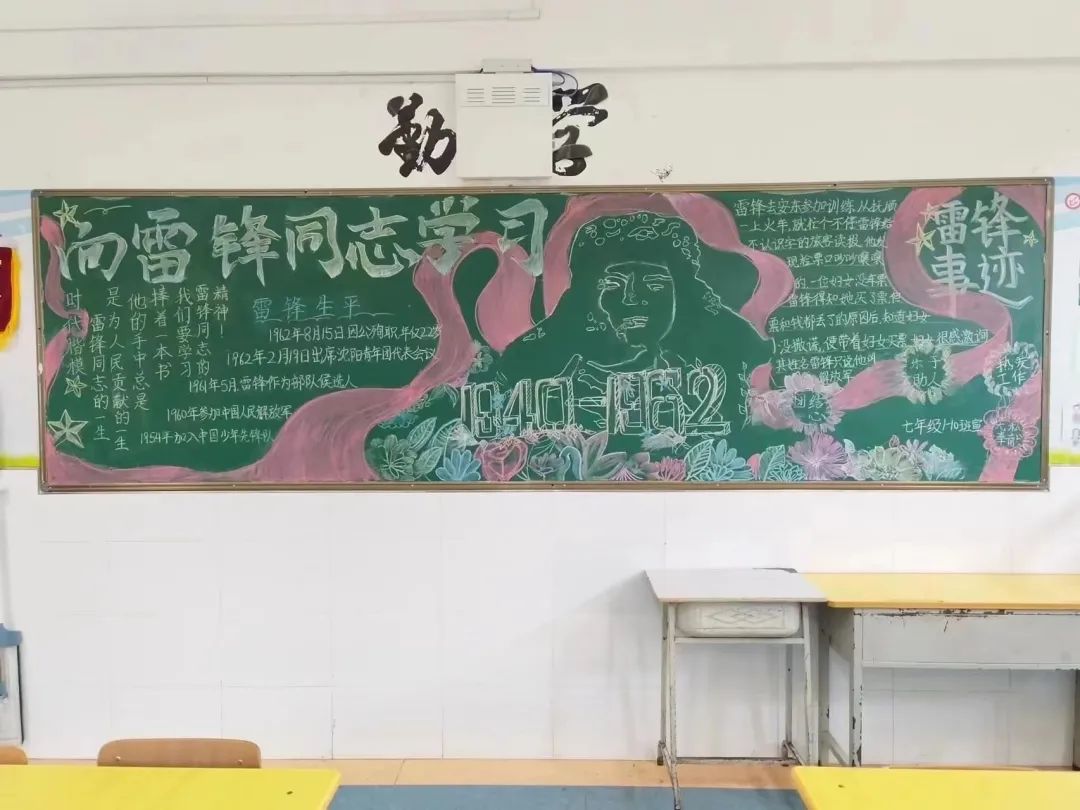 勤学
向雷锋同志学习
时代楷模
雷锋同志的
是为人民贡献的一生
他的手中总是
捧着一本书
我们要学习的
雷锋同志
精神!
雷锋生平
1962年8月15日因公殉职,年仅22岁
1962年2月19日出席沈阳青年团代表会议
1961年5月雷锋作为部队候选人
1960年参加中国人民解放军
1954年加入中国少年先锋队
1940-1962
雷锋事迹
雷锋去安东参加训练,从抚顺
一上火车,就
不认识字的旅客读报,他发
现检票口吵吵嚷嚷
的,一位妇女没有票
雷锋得知她买了票但
票和钱都丢了的原因后,知道妇女
没撒谎,便带着妇女买票
妇女很感激,问
其姓名雷锋只说他叫
解放军
团结
乐于
助人
工作
七年级1-10班宣